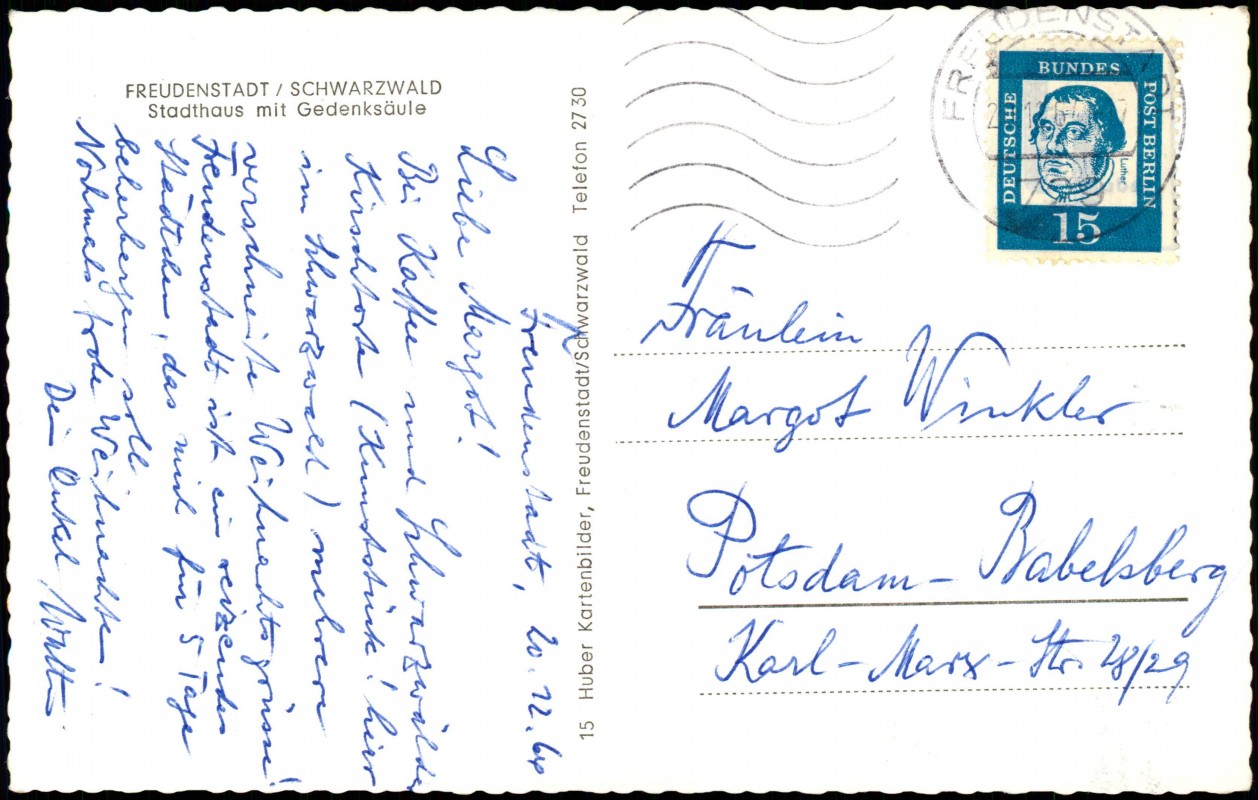 FREUDENSTADT / SCHWARZWALD
Stadthaus mit Gedenksäule
Freudenstadt, 20.12.64
Liebe Margot!
Bei Kaffee und Schwarzwälder
Kirschtorte (Kunststück! hier
im Schwarzwald) mehrere
verschneite Weihnachtsgrüsse!
Freudenstadt ist ein reizendes
Städtchen, das mich für 5 Tage
beherbergen soll.
Nohmals frohe Weihnachten!
Dein Onkel Walter
15 Huber Kartenbilder, Freudenstadt/Schwarzwald Telefon 27 30
FREUDENSTADT
DEUTSCHE
BUNDES
POST BERLIN
Luther
15
Fräulein
Margot Winkler
Potsdam-Babelsberg
Karl-Marx-Str. 28/29